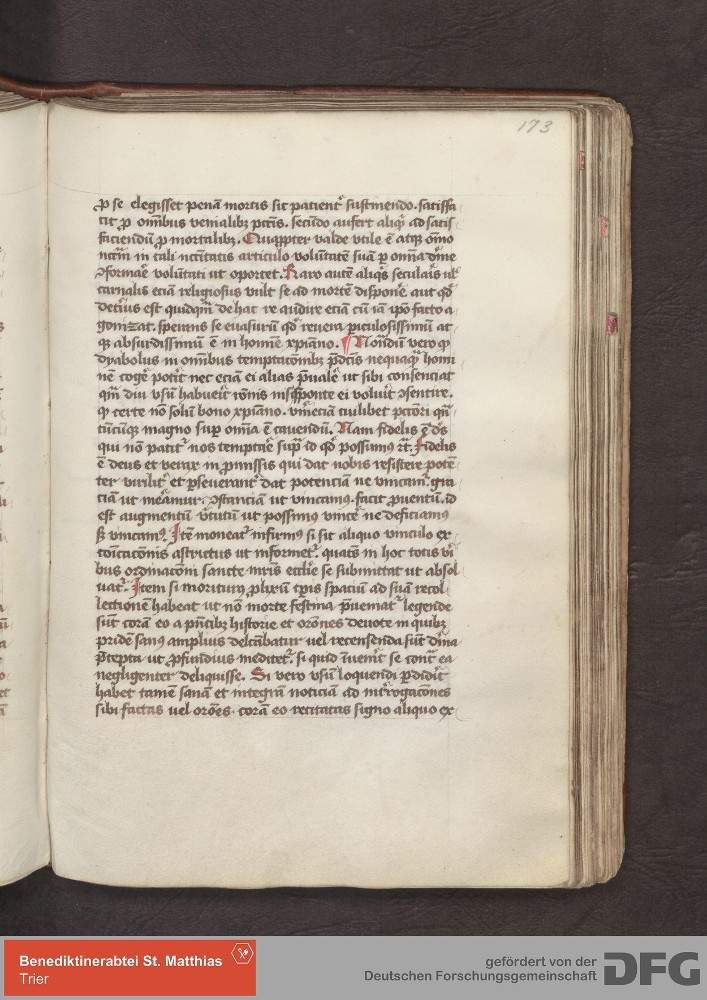 173
ꝑ se elegisset penā mortis sic patient͛ sustinendo. satisfa
cit ꝓ om̄ibus venialibꝫ pctīs. secūdo aufert aliqͥ ad satis
faciendū ꝓ mortalibꝫ. Quaꝓpter valde vtile ē atqꝫ om̄o
nccm̄ in tali nccītatis articulo volūtatē suā ꝑ om̄ia dīne
ꝯformaē volūtati ut oportet. Raro autē aliqͥs seculaīs uͥl
carnalis eciā religiosus vult se ad mortē dispone͛ aut qd̓
deteͥus est quidqm̄ de hac re audire eciā cū iā ipō facto a
gonizat. sperans se euasurū qd̓ reuera piculosissimū at
qꝫ absurdissimū ē in homīe xp̄iano. Nondū vero qͥ
dyabolus in om̄ibus temptacōibꝫ p̄dctīs nequaqͣ homi
nē coge͛ potīt nec eciā ei alias p̄uale͛ ut sibi consenciat
qm̄ diu vsū habueīt rōnis nisi sponte ei voluīt ꝯsentire.
qͥ certe nō solū bono xp̄iano. vm̄eciā cuilibet pctōri qn̄
tūcūqꝫ magno suꝑ om̄ia ē cauendū. Nam fidelis ē ds̄
qui nō patit͛ nos temptaē supͣ id qd̓ possumꝰ rc̄. Fidelis
ē deus et verax in ꝓmissis qui dat nobis resistere potē
ter virilit͛ et ꝑseuerant͛ dat potenciā ne vincam͛. gra
ciā ut mēamur. ꝯstanciā ut vincamꝰ. facit ꝓuentū. id
est augmentū v̓tutū ut possimꝰ vince͛ ne deficiamꝰ
sꝫ vincamꝰ. Itē moneat͛ infirmꝰ si sit aliquo vinculo ex
cōicacōnis astrictus ut informet͛. quatꝰ in hoc totis vi
bus ordinacōni sancte mr̄is eccl̄ie se submittat ut absol
uat͛. Item si moriturꝰ ꝓlixū tp̄ris spaciū ad suā recol
lectionē habeat ut nō morte festina p̄uemat͛ legende
sūt corā eo a pn̄tibꝫ historie et orōnes deuote in quibꝫ
pridē sanꝰ ampluis delcābatur uel recensenda sūt dīna
p̄cepta ut ꝓfundius meditet͛. si quid īueīt se contͣ ea
negligenter deliquisse. Si vero vsū loquendi ꝑdidīt
habet tamē sanā et integrā noticiā ad inͭrogacōnes
sibi factas uel orōes. corā eo recitatas signo aliquo ex
Benediktinerabtei St. Matthias
Trier
gefördert von der
Deutschen Forschungsgemeinschaft
DFG